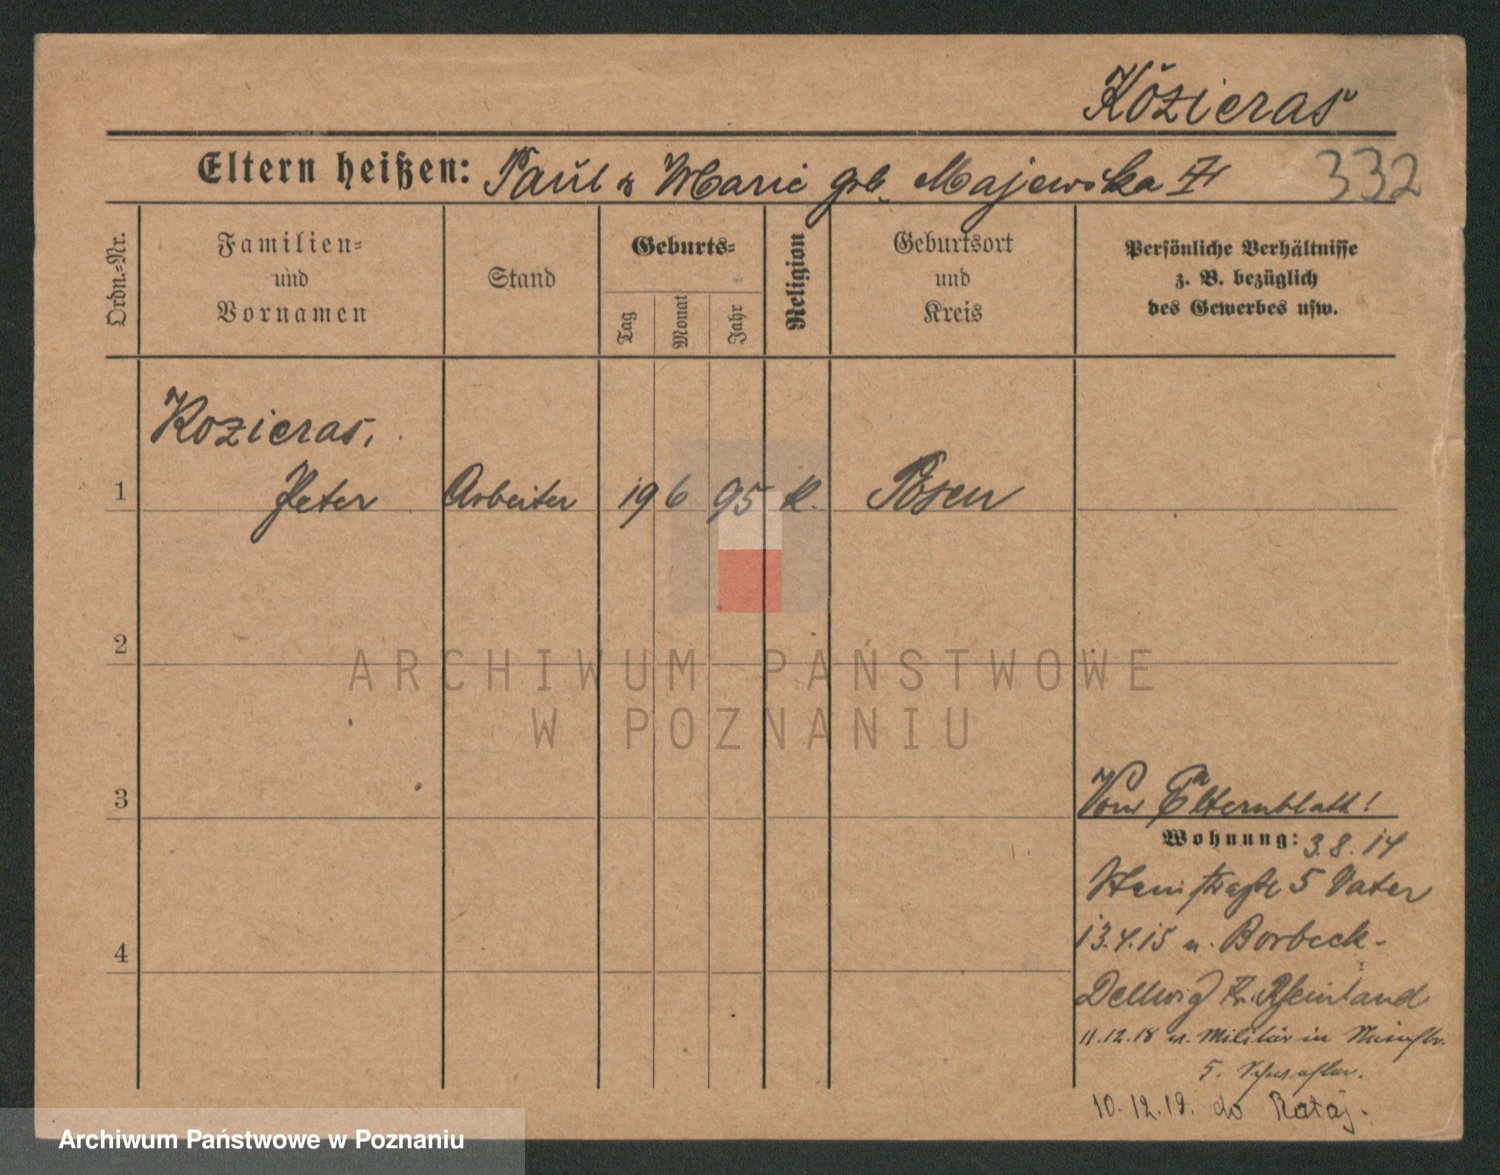 Kozieras
Eltern heißen: Paul & Marie geb. Majewska
332
Ordn.-Nr.
Familien-
und
Vornamen
Stand
Geburts-
Tag
Monat
Jahr
Religion
Geburtsort
und
Kreis
Persönliche Verhältnisse
z. B. bezüglich
des Gewerbes usw.
Kozieras,
1 Peter Arbeiter 19 6 95 k. Posen
2
3
4
Vom Elternblatt!
Wohnung: 3.8.14
5 Vater
13.4.15 n. Borbeck-
Dellwig Rheinland
11.12.18 v. Militär in
5.
10.12.19. do Rataj.
ARCHIWUM PAŃSTWOWE
W POZNANIU
Archiwum Państwowe w Poznaniu